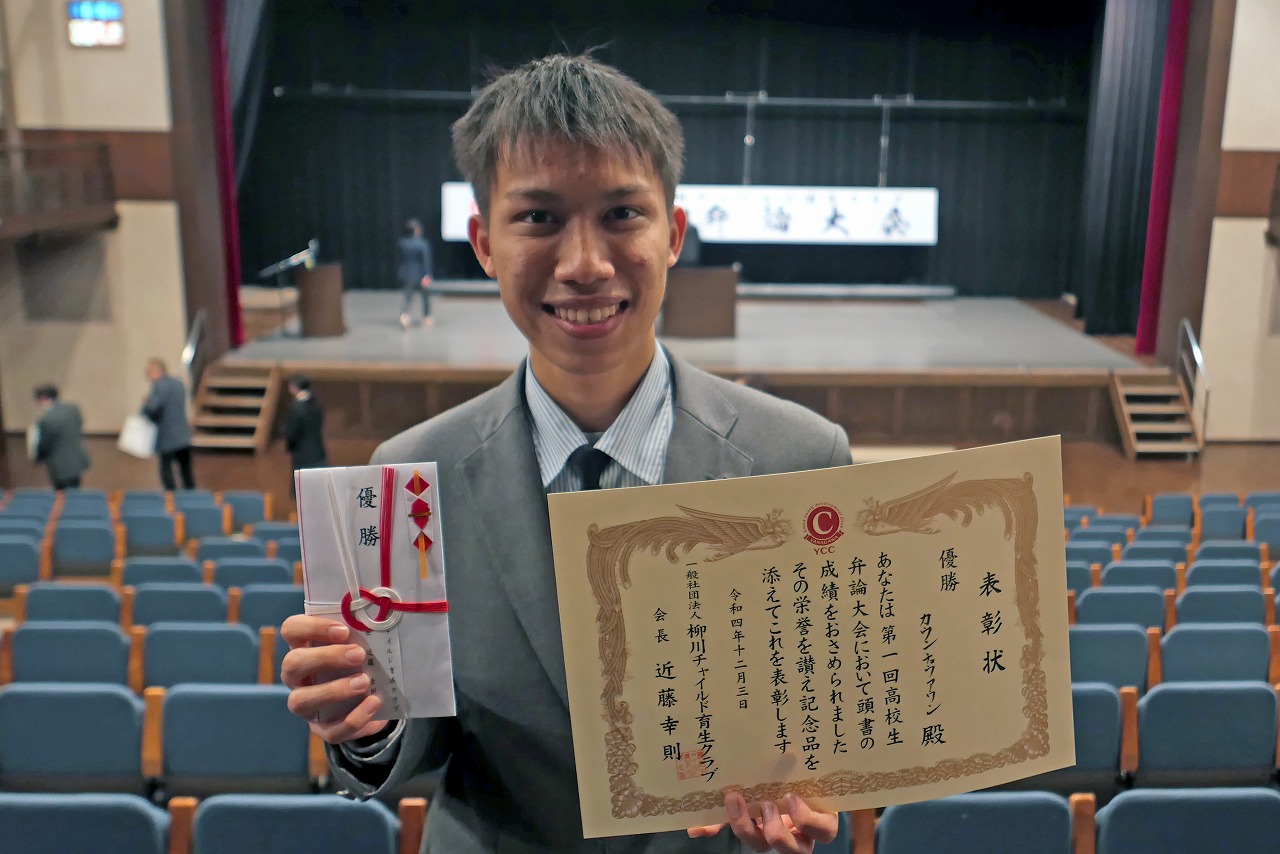 弁論大会
優勝
C
YCC
表彰状
優勝
カウンナファウン 殿
あなたは第一回高校生
弁論大会において頭書の
成績をおさめられました
その栄誉を讃え記念品を
添えてこれを表彰します
令和四年十二月三日
一般社団法人柳川チャイルド育生クラブ
会長 近藤幸則